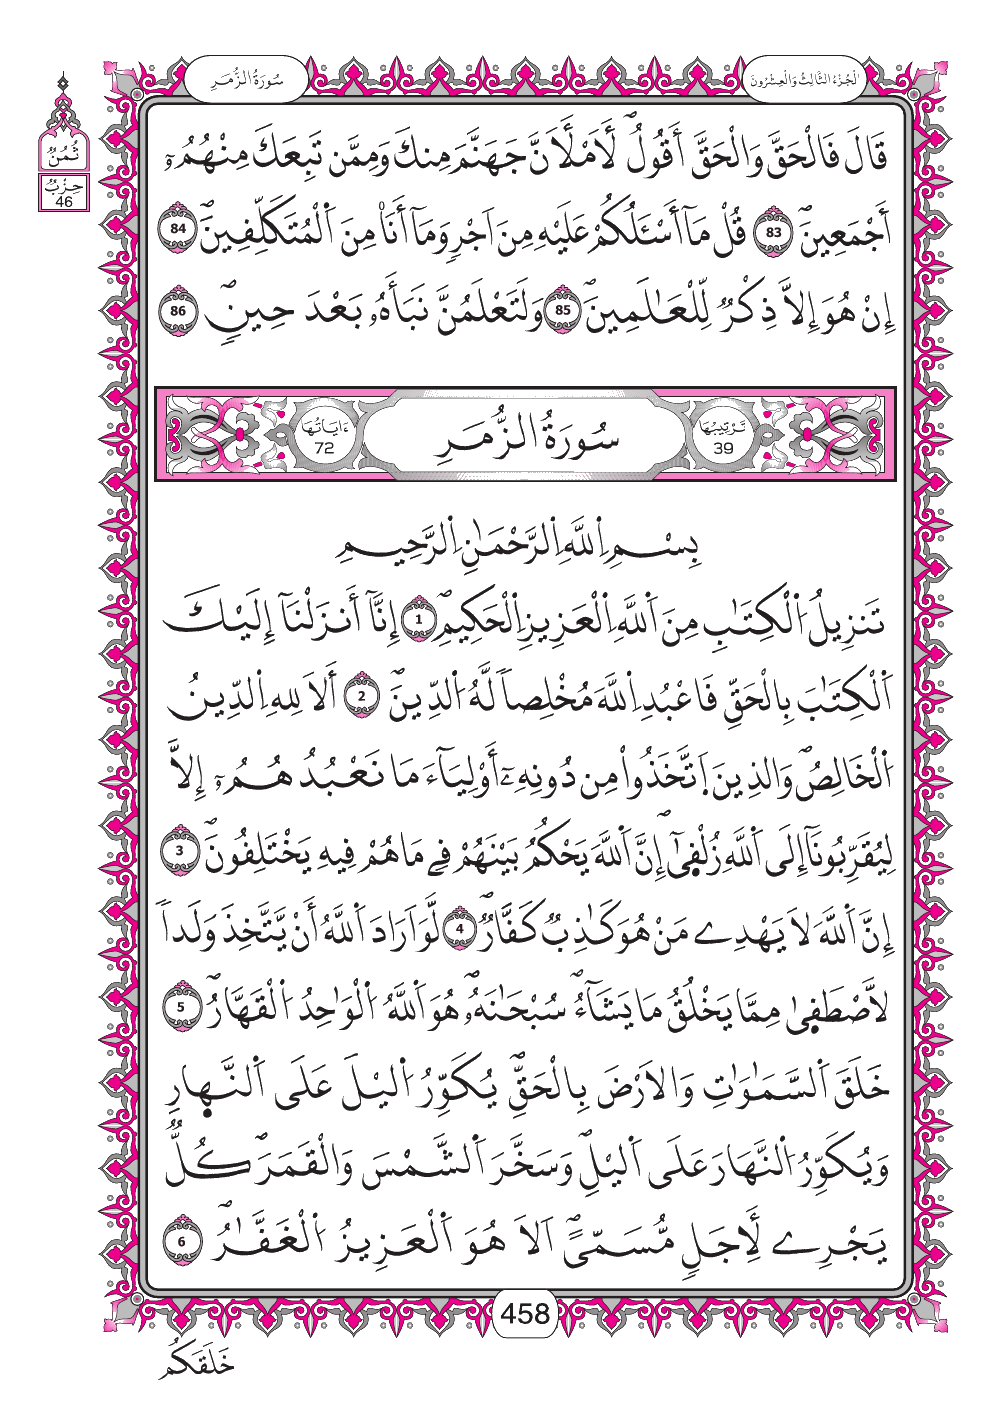 سُورَةُ الزُّمَرِ
الْجُزْءُ الثَّالِثُ وَالْعِشْرُونَ
ثُمُنُ
حِزْبُ
46
قَالَ فَالْحَقَّ وَالْحَقَّ أَقُولُ لَأَمْلَأَنَّ جَهَنَّمَ مِنكَ وَمِمَّن تَبِعَكَ مِنْهُمُۥٓ
أَجْمَعِينَۖ 83 قُلْ مَآ أَسْـَٔلُكُمْ عَلَيْهِ مِنَ اَجْرٖ وَمَآ أَنَا۠ مِنَ اَ۬لْمُتَكَلِّفِينَۖ 84
إِنْ هُوَ إِلَّا ذِكْرٞ لِّلْعَٰلَمِينَۖ 85 وَلَتَعْلَمُنَّ نَبَأَهُۥ بَعْدَ حِينِۢۖ 86
تَرْتِيبُهَا
39
سُورَةُ الزُّمَرِ
ءَايَاتُهَا
72
بِسْمِ اِ۬للَّهِ اِ۬لرَّحْمَٰنِ اِ۬لرَّحِيمِ
تَنزِيلُ اُ۬لْكِتَٰبِ مِنَ اَ۬للَّهِ اِ۬لْعَزِيزِ اِ۬لْحَكِيمِۖ 1 إِنَّآ أَنزَلْنَآ إِلَيْكَ
اَ۬لْكِتَٰبَ بِالْحَقِّ فَاعْبُدِ اِ۬للَّهَ مُخْلِصاٗ لَّهُ اُ۬لدِّينَۖ 2 أَلَا لِلهِ اِ۬لدِّينُ
اُ۬لْخَالِصُۖ وَالذِينَ اَ۪تَّخَذُواْ مِن دُونِهِۦٓ أَوْلِيَآءَ مَا نَعْبُدُهُمُۥٓ إِلَّا
لِيُقَرِّبُونَآ إِلَى اَ۬للَّهِ زُلْف۪ىٰٓۖ إِنَّ اَ۬للَّهَ يَحْكُمُ بَيْنَهُمْ فِے مَا هُمْ فِيهِ يَخْتَلِفُونَۖ 3
إِنَّ اَ۬للَّهَ لَا يَهْدِے مَنْ هُوَ كَٰذِبٞ كَفَّارٞۖ 4 لَّوَ اَرَادَ اَ۬للَّهُ أَنْ يَّتَّخِذَ وَلَداٗ
لَّاصْطَف۪ىٰ مِمَّا يَخْلُقُ مَا يَشَآءُۖ سُبْحَٰنَهُۥۖ هُوَ اَ۬للَّهُ اُ۬لْوَٰحِدُ اُ۬لْقَهَّارُۖ 5
خَلَقَ اَ۬لسَّمَٰوَٰتِ وَالَارْضَ بِالْحَقِّۖ يُكَوِّرُ اُ۬ليْلَ عَلَى اَ۬لنَّه۪ارِ
وَيُكَوِّرُ اُ۬لنَّهَارَ عَلَى اَ۬ليْلِۖ وَسَخَّرَ اَ۬لشَّمْسَ وَالْقَمَرَۖ كُلّٞ
يَجْرِے لِأَجَلٖ مُّسَمّىًۖ اَلَا هُوَ اَ۬لْعَزِيزُ اُ۬لْغَفَّٰرُۖ 6
458
خَلَقَكُم